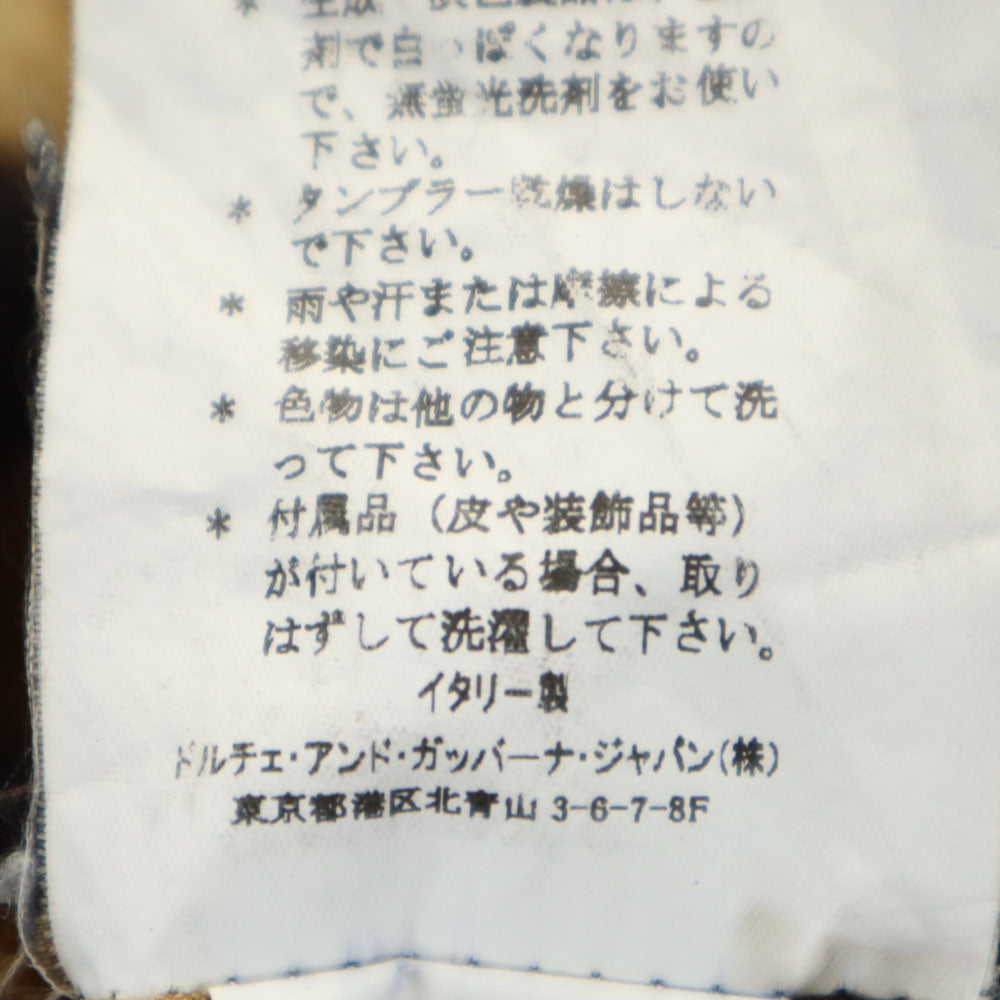 剤で白っぽくなりますの
で、無蛍光洗剤をお使い
下さい。
* タンブラー乾燥はしない
で下さい。
* 雨や汗または摩擦による
移染にご注意下さい。
* 色物は他の物と分けて洗
って下さい。
* 付属品（皮や装飾品等）
が付いている場合、取り
はずして洗濯して下さい。
イタリー製
ドルチェ・アンド・ガッバーナ・ジャパン(株)
東京都港区北青山 3-6-7-8F